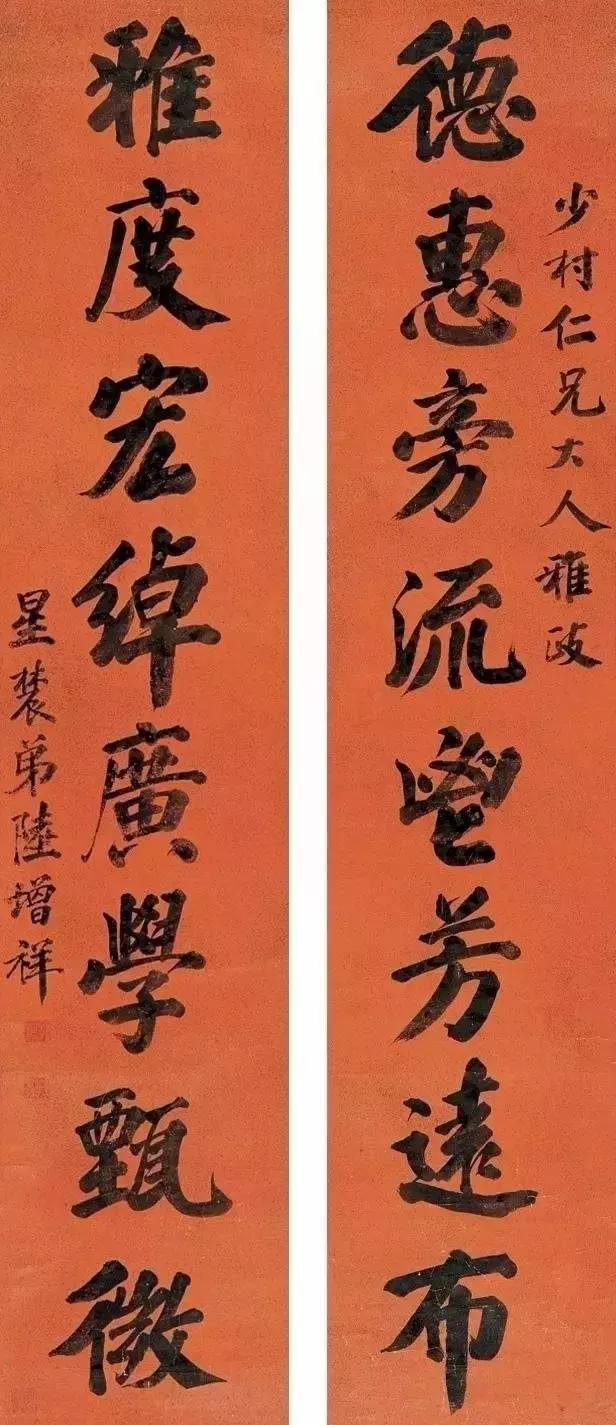 少村仁兄大人雅政
德惠旁流鬯芳遠布
雅度宏綽廣學甄微
星農弟陸增祥